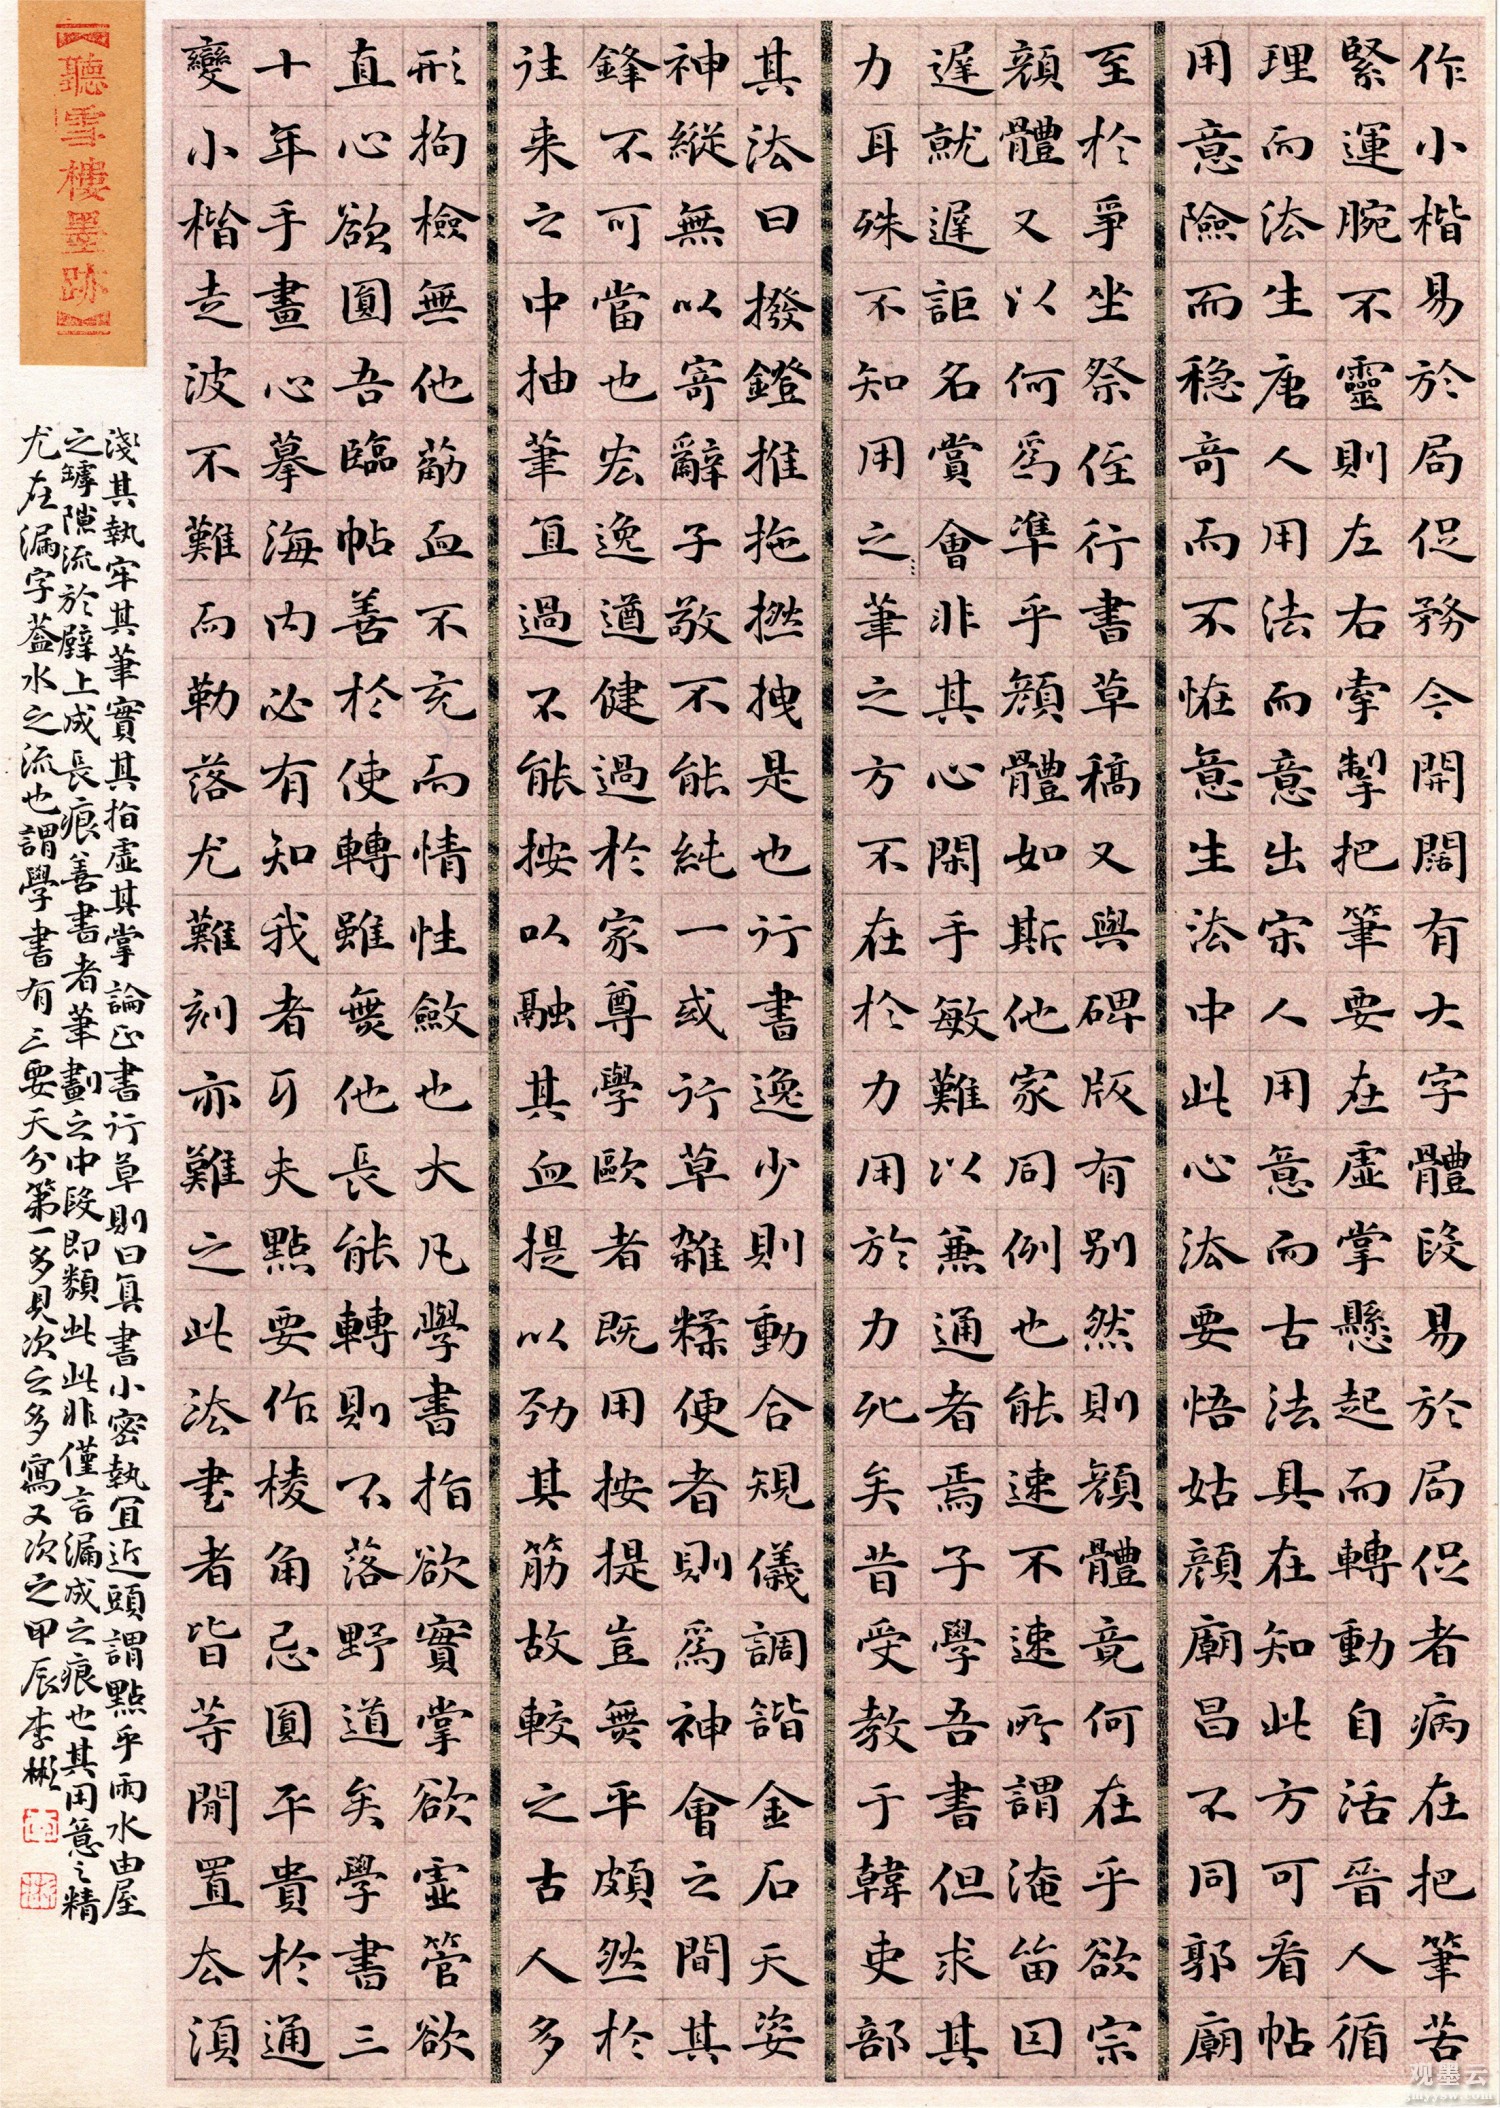 作小楷易於局促務令開闊有大字體段易於局促者病在把筆苦
緊運腕不靈則左右牽掣把筆要在虛掌懸起而轉動自活晉人循
理而法生唐人用法而意出宋人用意而古法具在知此方可看帖
用意險而穩奇而不怪意生法中此心法要悟姑顏廟昌不同郭廟
至於爭坐祭侄行書草稿又與碑版有别然則顏體竟何在乎欲宗
顏體又以何爲準乎顏體如斯他家同例也能速不速所謂淹笛因
遲就遲詎名賞會非其心閑手敏難以兼通者焉子學吾書但求其
力耳殊不知用之筆之方不在於力用於力死矣昔受教于韓吏部
其法曰撥鐙推拖撚拽是也行書逸少則動合規儀調諧金石天姿
神縱無以寄辭子敬不能純一或行草雜糅便者則爲神會之間其
鋒不可當也宏逸遒健過於家尊學歐者既用按提豈無平頗然於
往来之中抽筆宜過不能按以融其血提以勁其筋故較之古人多
形拘檢無他筋血不充而情性斂也大凡學書指欲實掌欲虛管欲
直心欲圓吾臨帖善於使轉雖無他長能轉則不落野道矣學書三
十年手畫心摹海内必有知我者耳夫點要作棱角忌圓平貴於通
變小楷走波不難而勒落尤難刻亦難之此法書者皆等閒置去須
淺其執牢其筆實其指虛其掌論正書行草則曰真書小密執宜近頭謂點乎雨水由屋
之罅隙流於壁上成長痕善書者筆劃之中段即類此此非僅言漏成之痕也其用意之精
尤在漏字蓋水之流也謂學書有三要天分第一多見次之多寫又次之甲辰李彬
【聽雪樓墨跡】
观墨云
gmyysw.com